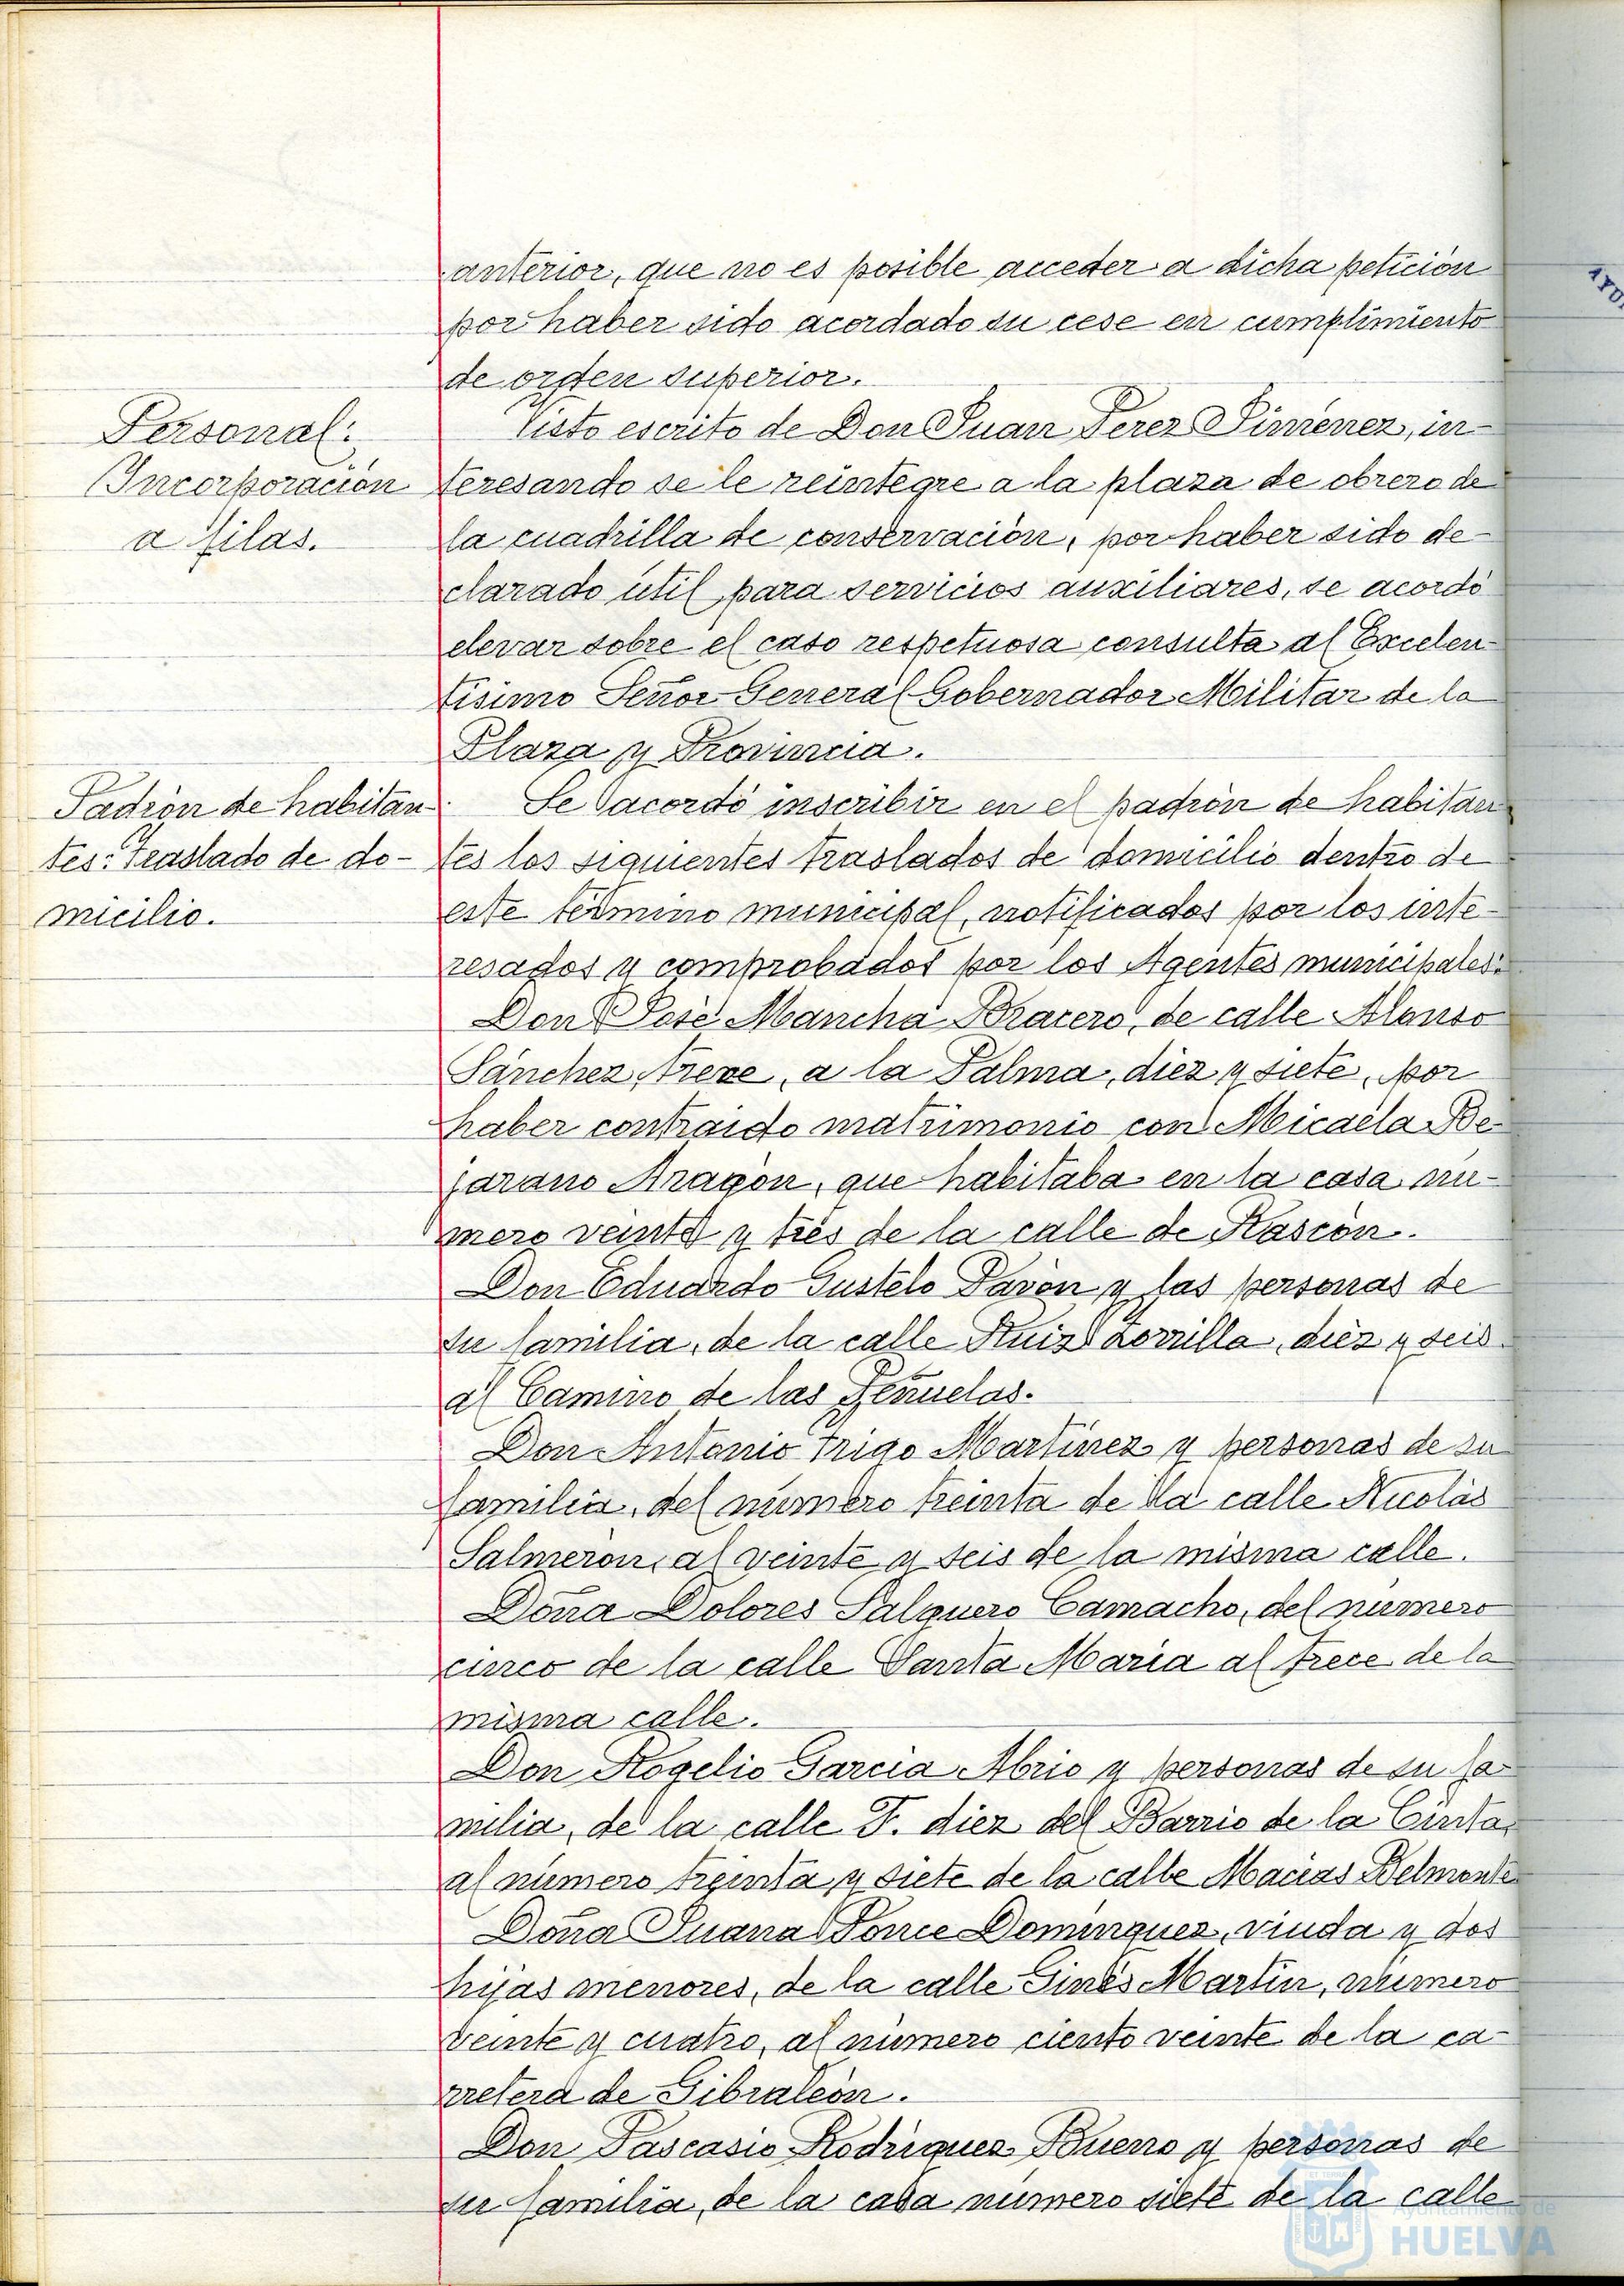 anterior, que no es posible acceder a dicha petición
por haber sido acordado su cese en cumplimiento
de orden superior.
Personal:
Incorporación
a filas.
Visto escrito de Don Juan Perez Jimenez, in-
teresando se le reintegre a la plaza de obrero de
la cuadrilla de conservación, por haber sido de-
clarado útil para servicios auxiliares, se acordó
elevar sobre el caso respetuosa consulta al Excelen-
tisimo Señor General Gobernador Militar de la
Plaza y Provincia.
Padrón de habitan-
tes: Traslado de do-
micilio.
Se acordó inscribir en el padrón de habitan-
tes los siguientes traslados de domicilio dentro de
este término municipal, notificados por los inte-
resados y comprobados por los Agentes municipales:
Don José Mancha Bracero, de calle Alonso
Sánchez, trece, a la Palma, diez y siete, por
haber contraido matrimonio con Micaela Be-
jarano Aragón, que habitaba en la casa nú-
mero veinte y trés de la calle de Rascón.
Don Eduardo Gustelo Pavón y las personas de
su familia, de la calle Ruiz Zorrilla, diez y seis
al Camino de las Peñuelas.
Don Antonio Trigo Martinez y personas de su
familia, del número treinta de la calle Nicolás
Salmerón, al veinte y seis de la misma calle.
Doña Dolores Salguero Camacho, del número
cinco de la calle Santa Maria al trece de la
misma calle.
Don Rogelio Garcia Abrio y personas de su fa-
milia, de la calle F. diez del Barrio de la Cinta,
al número treinta y siete de la calle Macias Belmonte
Doña Juana Ponce Dominguez, viuda y dos
hijas menores, de la calle Ginés Martin, número
veinte y cuatro, al número ciento veinte de la ca-
rretera de Gibraleón.
Don Pascasio Rodriguez Bueno y personas de
su familia, de la casa número siete de la calle
Ayuntamiento de
HUELVA